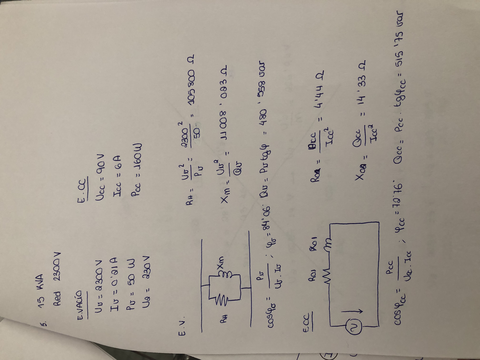 5. 15 KVA
Red 2300V
E.VACÍO
Uv = 2300 V
Iv = 0'21 A
Pv = 50 W
U2 = 230 V
E.CC
Ucc = 90V
Icc = 6 A
Pcc = 160 W
E.V.
RA
Xm
RA = Uv² / Pv = 2300² / 50 = 105800 Ω
Xm = Uv² / Qv = 11008'023 Ω
cosφv = Pv / Uv·Iv ; φv = 84'06° Qv = Pv tgφ = 480'558 var
E.CC
R01 X01
Rcc = Pcc / Icc² = 4'44 Ω
Xcc = Qcc / Icc² = 14'33 Ω
cosφcc = Pcc / Ucc·Icc ; φcc = 72'76° Qcc = Pcc·tgφcc = 515'75 var